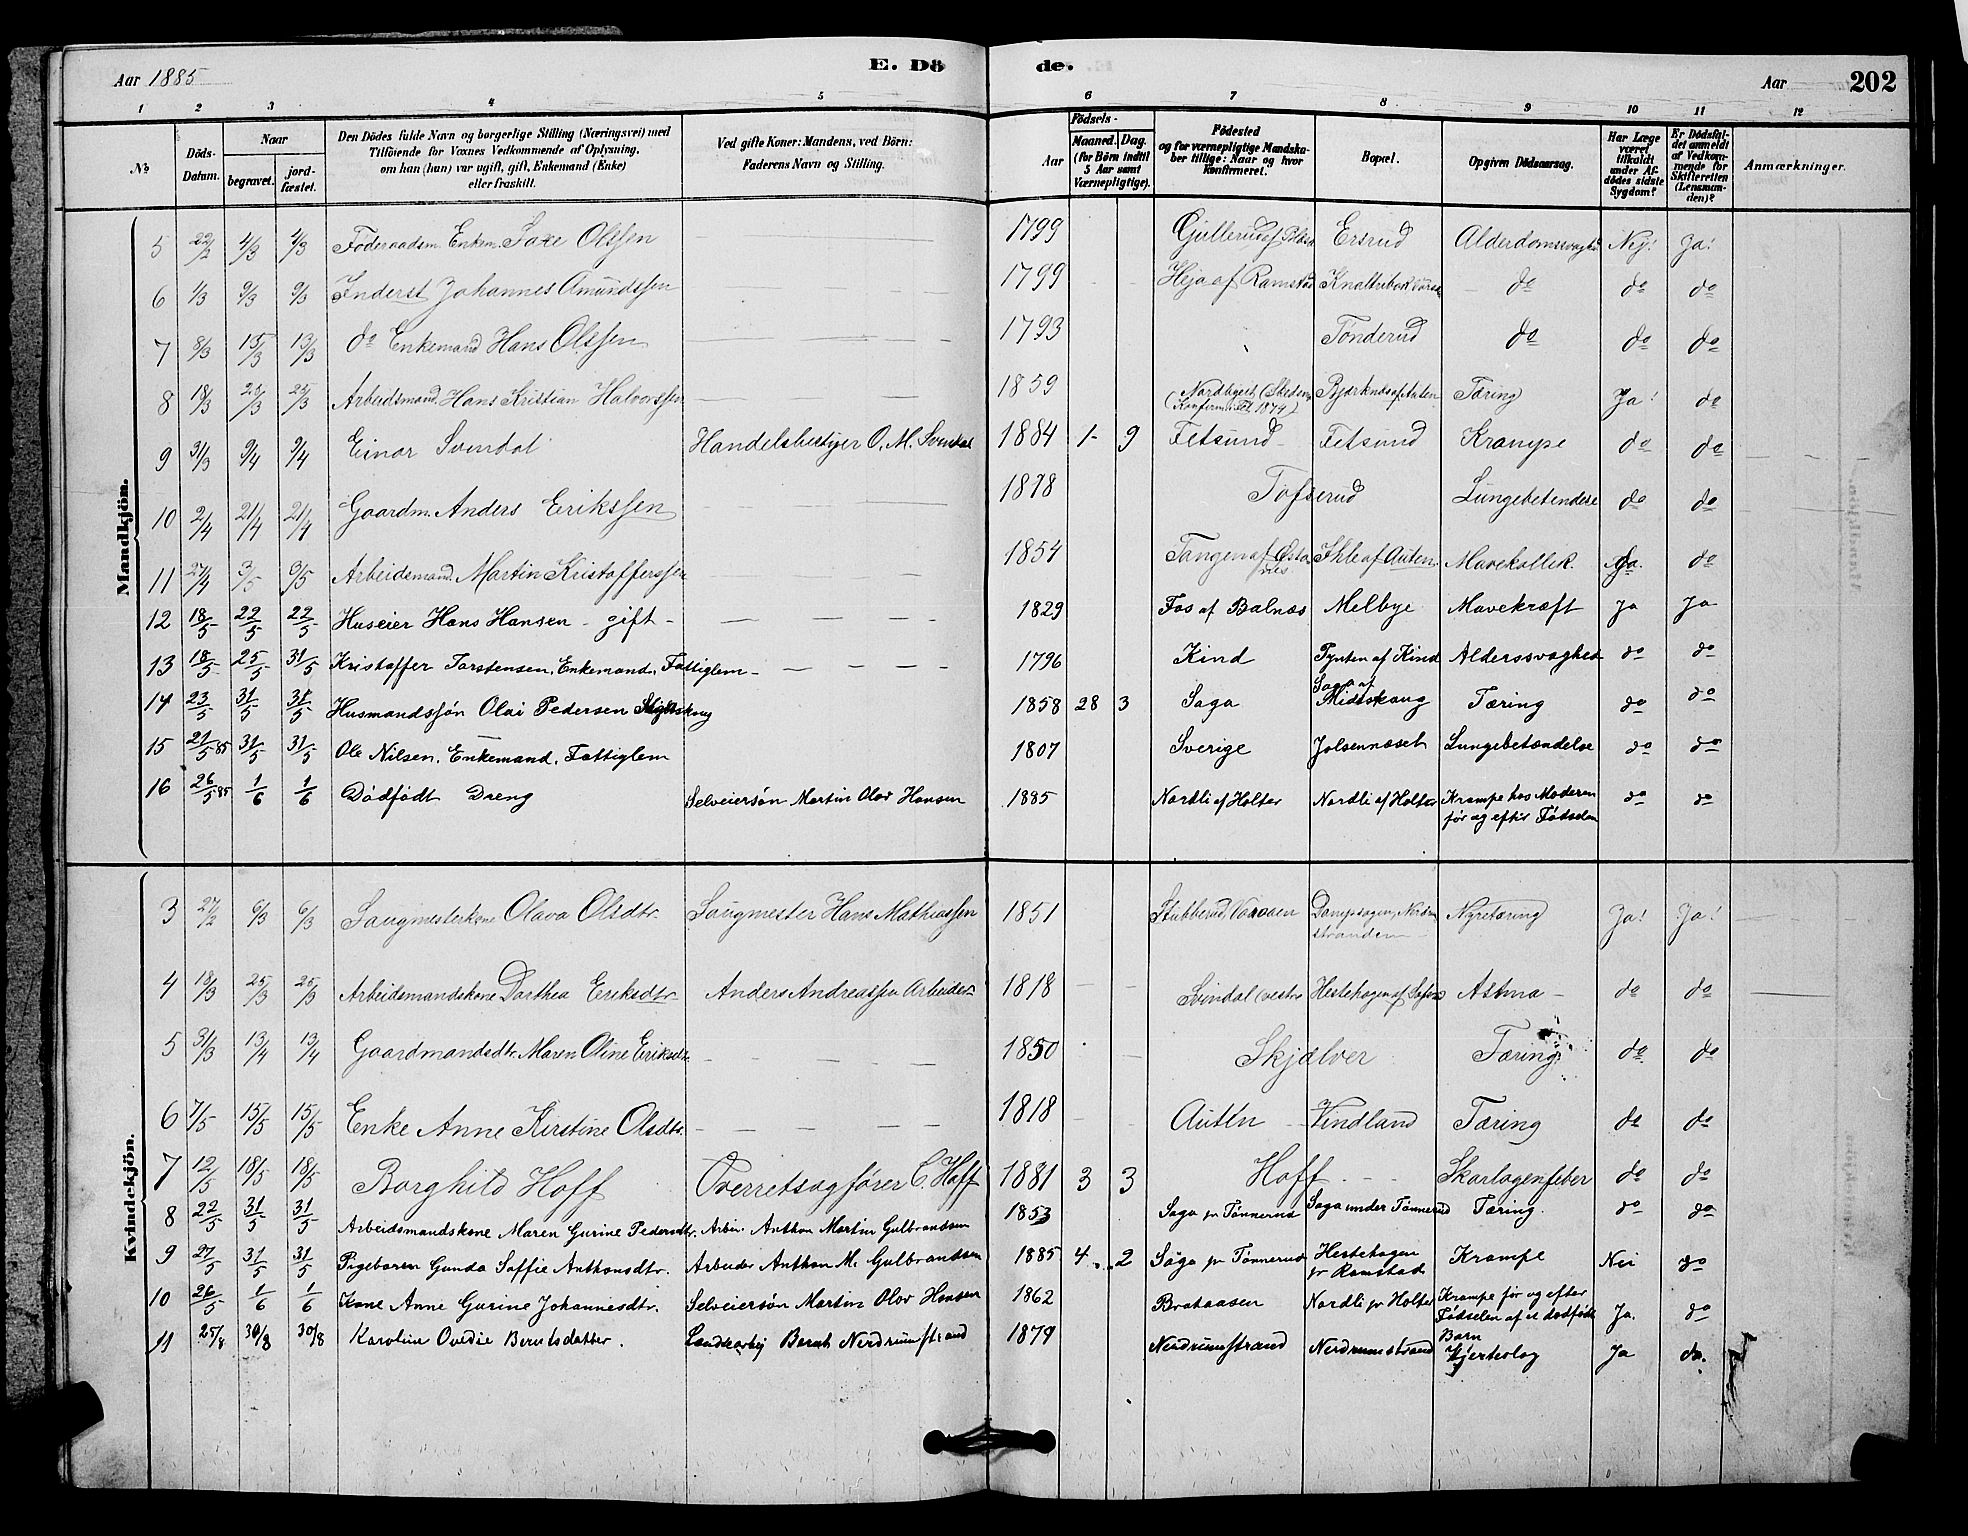 Aar 1885 E. Dö de. Aar 202
1 2 3 4 5 6 7 8 9 10 11 12
No. Döds-Datum. Naar begravet. jord-fæstet. Den Dödes fulde Navn og borgerlige Stilling (Næringsvei) med Tilföiende for Voxnes Vedkommende af Oplysning, om han (hun) var ugift, gift, Enkemand (Enke) eller fraskilt. Ved gifte Koner: Mandens, ved Börn: Faderens Navn og Stilling. Födsels- Aar Maaned. Dag. (for Börn indtil 5 Aar samt Værnepligtige). Födested og for værnepligtige Mandskaber tillige: Naar og hvor konfirmeret. Bopæl. Opgiven Dödsaarsag. Har Læge været tilkaldt under Afdödes sidste Sygdom? Er Dödsfaldet anmeldt af Vedkommende for Skifteretten (Lensmanden)? Anmærkninger.
Mandkjön.
5 22/2 4/3 4/3 Föderaadsm. Enkem. Saxe Olssen 1799 Gullerud af Ersrud Alderdomssvaghed Nej! Ja!
6 1/3 9/3 9/3 Inderst Johannes Amundssen 1799 Heja af Ramstad do do do
7 8/3 15/3 13/3 do Enkemand Hans Olssen 1793 Tönderud do do do
8 18/3 25/3 25/3 Arbeidsmand. Hans Kristian Halvorssen 1859 Nordbyeit (Skedsm. Konfirm. 1874) Bjørknæs af Auten Tæring Ja! do
9 31/3 9/4 9/4 Einar Svendal Handelsbestyrer O. M. Svendal 1884 1 9 Fetsund Fetsund Krampe do do
10 2/4 21/4 21/4 Gaardm. Anders Erikssen 1878 Tofserud Lungebetendese do do
11 27/4 3/5 3/5 Arbeidsmand Martin Kristofferssen 1854 Tangen af Ihle af Auten Mavekollik. do
12 18/5 22/5 22/5 Huseier Hans Hansen - gift - 1829 Fos af Balnæs Melbye Mavekræft Ja Ja
13 18/5 25/5 31/5 Kristoffer Torstensen, Enkemand, Fattiglem 1796 Kind Pynten af Kind Alderssvaghed do do
14 23/5 31/5 31/5 Husmandssøn Olai Pedersen 1858 28 3 Saga Saga af Midtskaug Tæring do do
15 21/5 85 31/5 31/5 Ole Nilsen, Enkemand, Fattiglem 1807 Sverige Jolsennæset Lungebetændelse do do
16 26/5 85 1/6 1/6 Dødfødt Dreng Selveiersøn Martin Olav Hansen 1885 Nordli af Holter Nordli af Holter Krampe hos Moderen
før og efter Fødselen do do
Kvindekjön.
3 27/2 6/3 6/3 Saugmesterkone Olava Olsdtr. Saugmester Hans Mathiassen 1851 Stubberud, Dampsagen, Nerdrum
stranden Nyretæring Ja! Ja!
4 18/3 25/3 25/3 Arbeidsmandskone Dorthea Eriksdtr. Anders Andreassen Arbeider 1818 Svindal (vestre Hestehagen af Astma do do
5 31/3 13/4 13/4 Gaardmandsdtr. Maren Oline Eriksdtr. 1850 Skjælver Tæring do do
6 7/5 15/5 15/5 Enke Anne Kirstine Olsdtr. 1818 Auten Vindland Tæring do do
7 12/5 18/5 18/5 Borghild Hoff Overretsagfører C. Hoff 1881 3 3 Hoff Skarlagenfeber do do
8 22/5 31/5 31/5 Arbeidsmandskone Maren Gurine Pedersdtr. Arbm. Anthon Martin Gulbrandsen 1853 Saga pr Tønnerud Saga under Tønnerud Tæring. do do
9 27/5 31/5 31/5 Pigebarnn Gunda Soffie Anthonsdtr. Arbeider Anthon M. Gulbrandsen 1885 4 2 Saga pr Tønnerud Hestehagen
pr Ramstad Krampe Nei do
10 26/5 1/6 1/6 Kone Anne Gurine Johannesdtr. Selveiersøn Martin Olav Hansen 1862 Brataasen Nordli pr Holter Krampe før og efter
Fødselen af et dødfødt
Barn Ja. do
11 25/8 30/8 30/8 Karoline Ovedie Berntsdatter. Bernt Nerdrumstrand 1879 Nerdrumstrand Nerdrumstrand Hjerteslag Ja do.